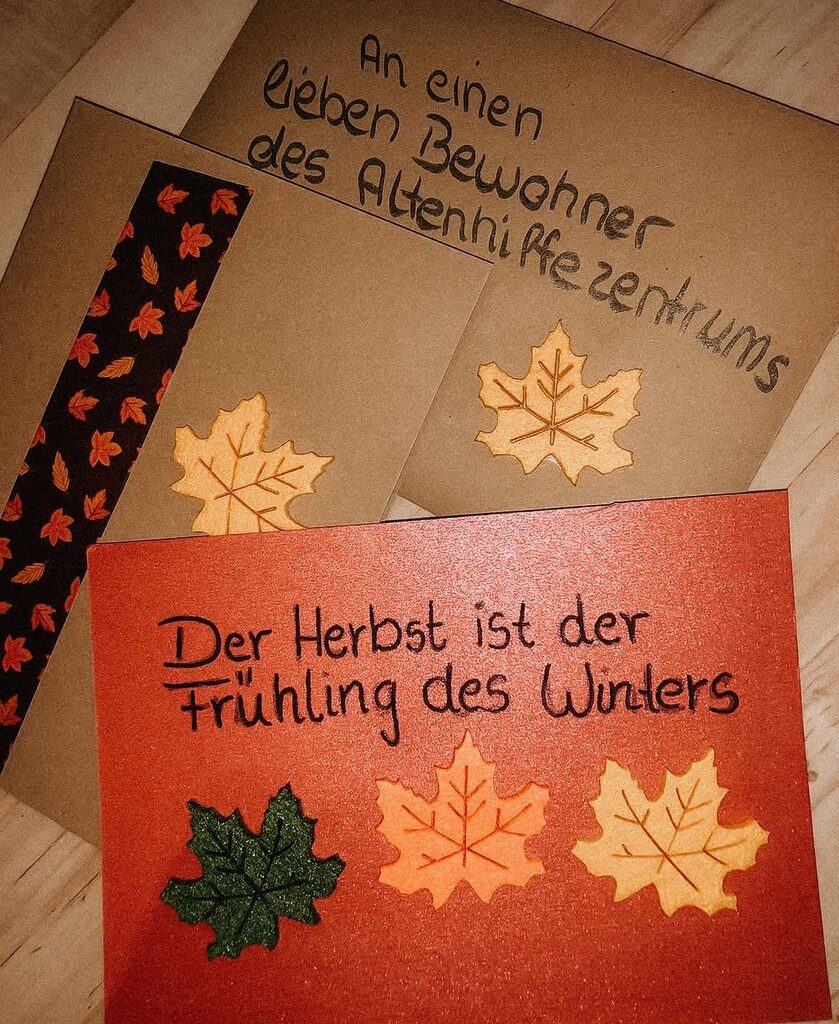 An einen
lieben Bewohner
des Altenhilfezentrums
Der Herbst ist der
Frühling des Winters